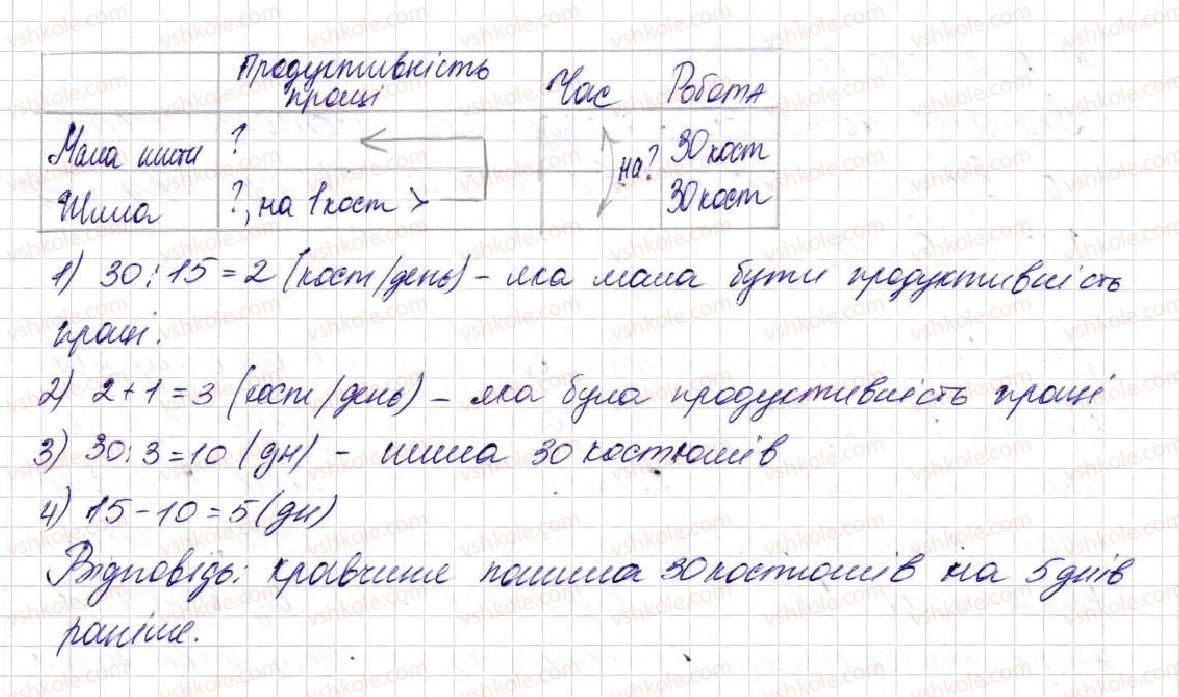 Продуктивність праці Час Робота
Мала шити ? 30 кост
на?
Шила ?, на 1 кост > 30 кост
1) 30 : 15 = 2 (кост/день) – яка мала бути продуктивність
праці.
2) 2 + 1 = 3 (кост/день) – яка була продуктивність праці
3) 30 : 3 = 10 (дн) – шила 30 костюмів
4) 15 – 10 = 5 (дн)
Відповідь: кравчиня пошила 30 костюмів на 5 днів
раніше.